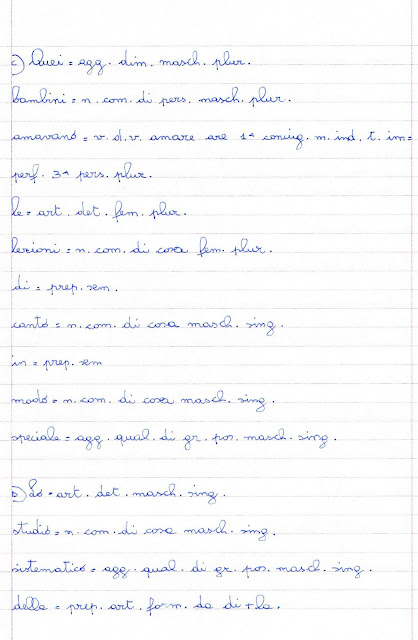 c) Quei = agg. dim. masch. plur.
bambini = n. com. di pers. masch. plur.
amavano = v. d. v. amare are 1ª coniug. m. ind. t. im=
perf. 3ª pers. plur.
le = art. det. fem. plur.
lezioni = n. com. di cosa fem. plur.
di = prep. sem.
canto = n. com. di cosa masch. sing.
in = prep. sem
modo = n. com. di cosa masch. sing.
speciale = agg. qual. di gr. pos. masch. sing.
D) Lo = art. det. masch. sing.
studio = n. com. di cosa masch. sing.
sistematico = agg. qual. di gr. pos. masch. sing.
della = prep. art. form. da di + la.